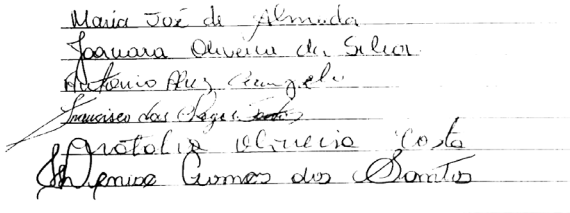 Maria José de Almeida
Joanara Oliveira da Silva
Antonio Alves
Francisco das Chagas
Natalia Oliveira Costa
Denise Gomes dos Santos